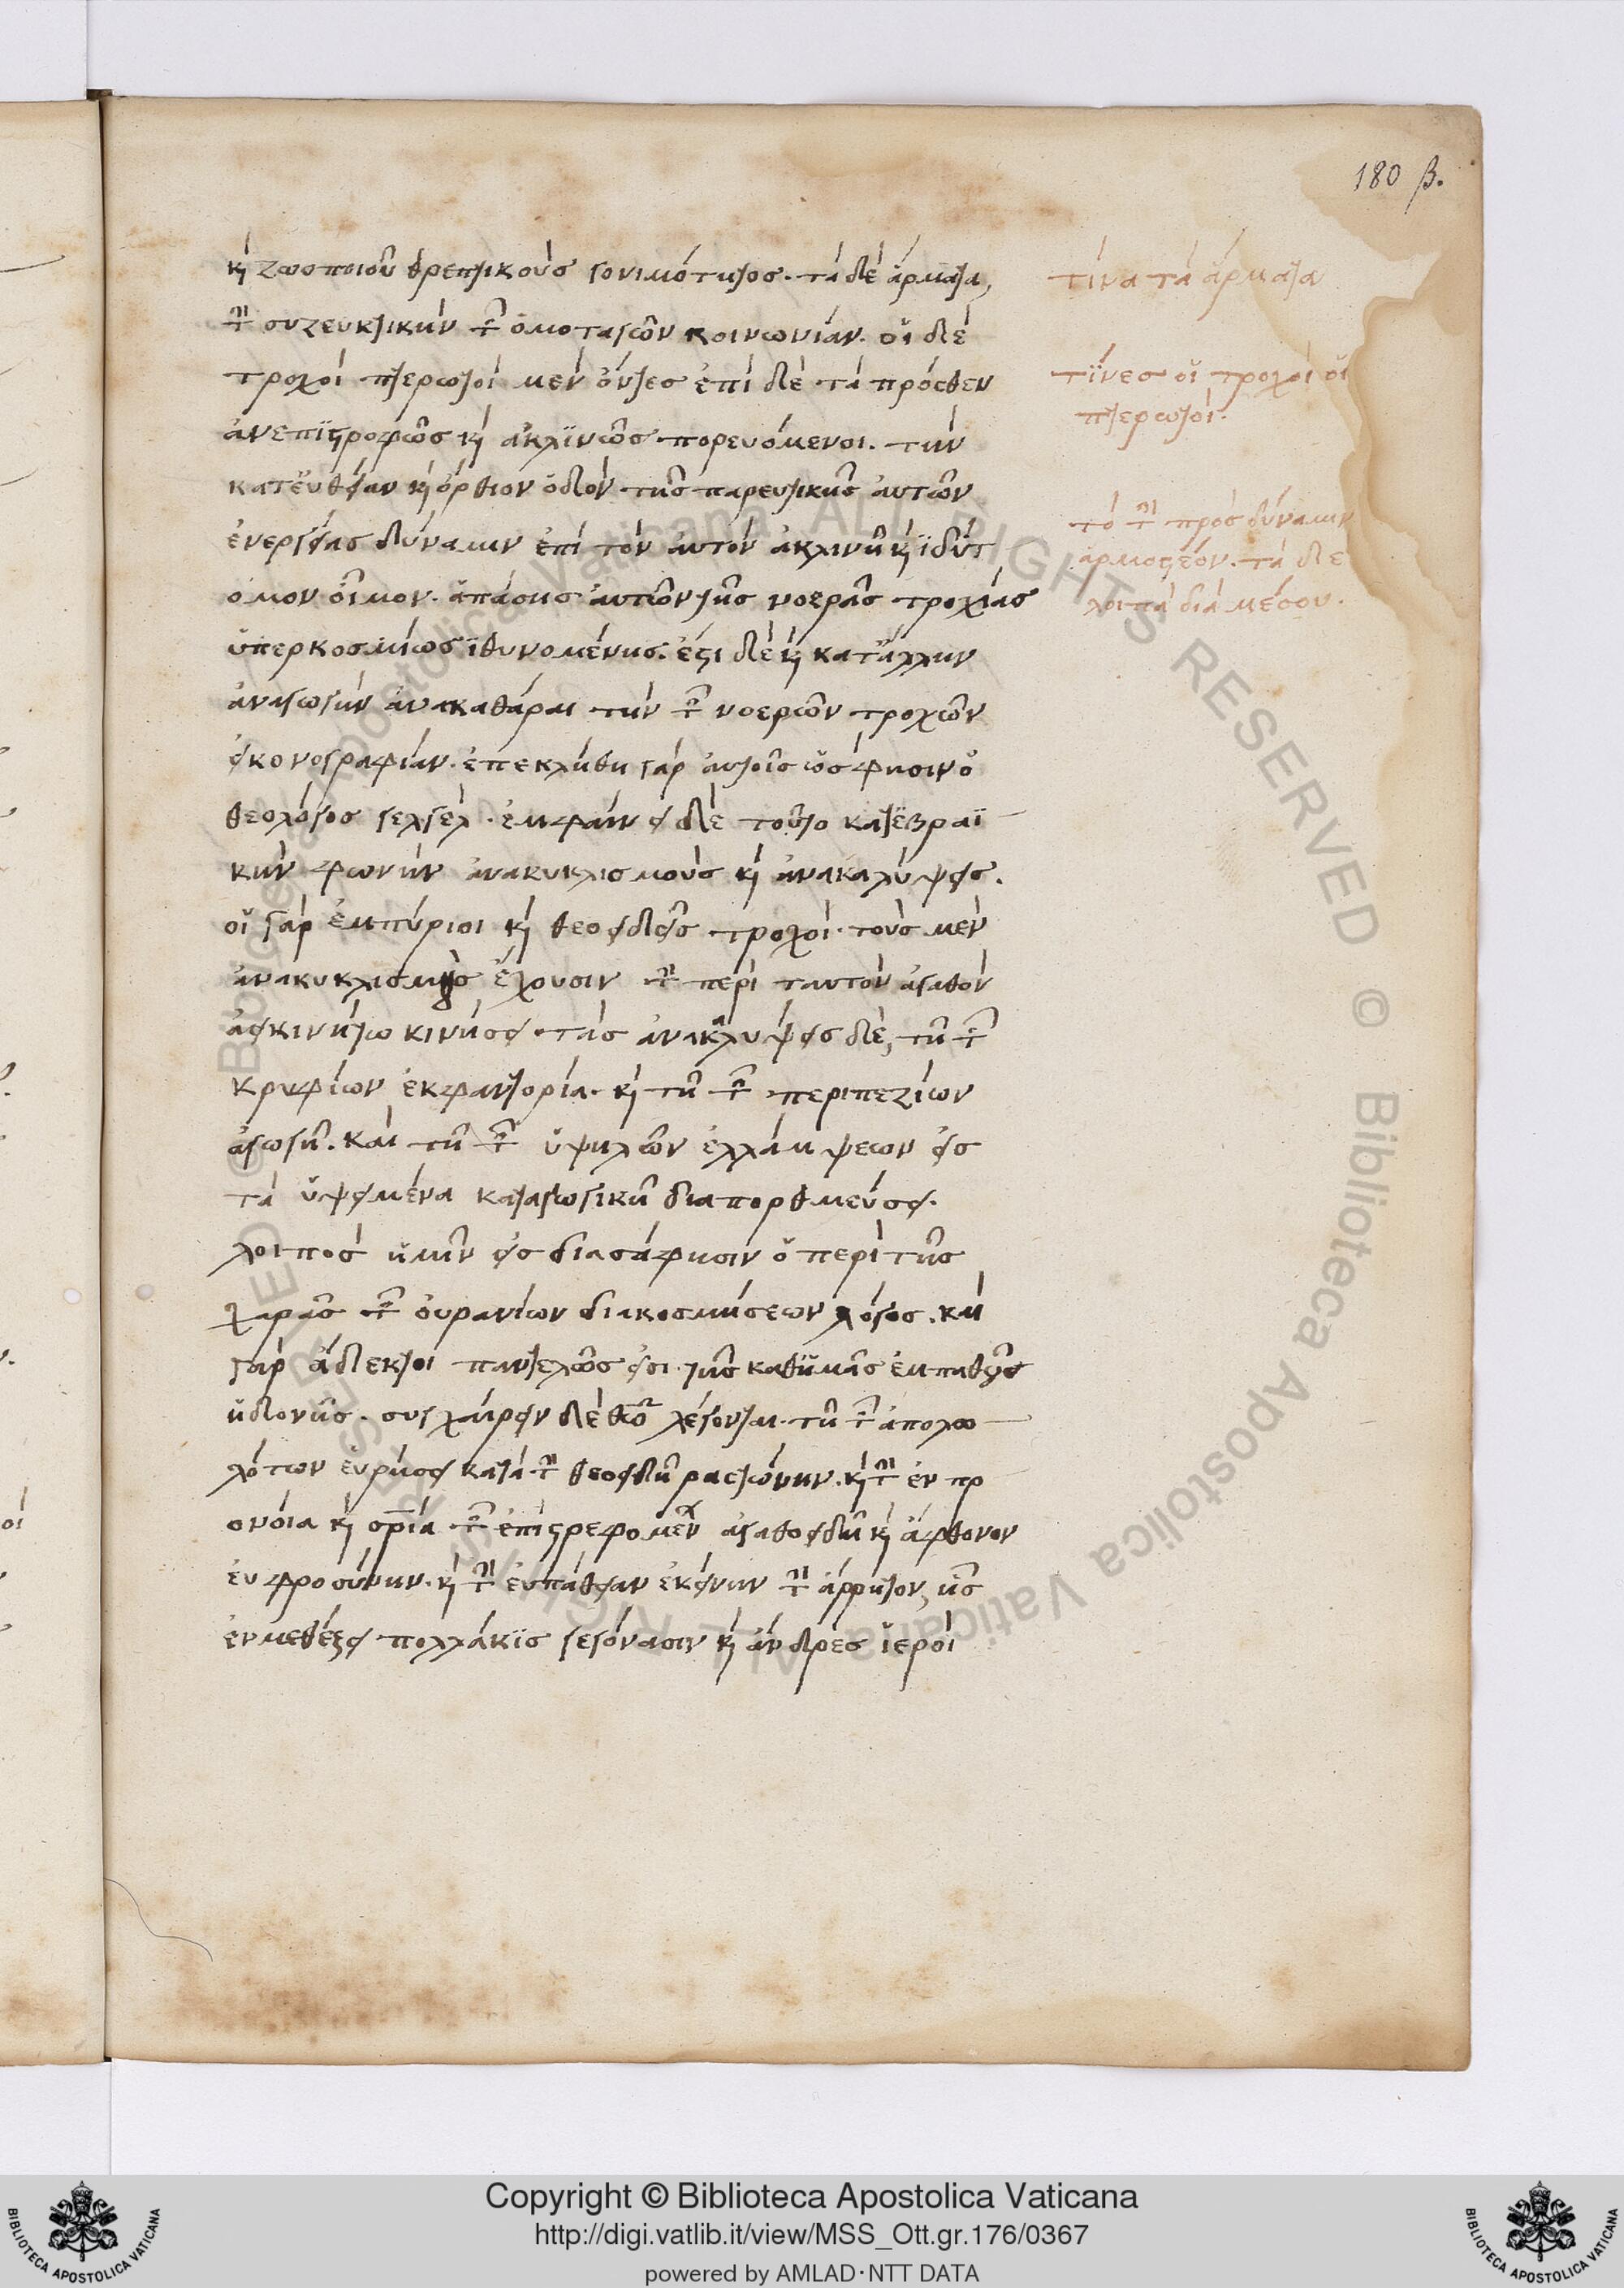 180 β.
κὶ ζωοποιοῦ θρεπτικοὺς γονιμότητος. τὰ δὲ ἅρματα,
τὴν συζευκτικὴν τῶν ὁμοταγῶν κοινωνίαν. οἱ δὲ
τροχοὶ πτερωτοὶ μὲν ὄντες ἐπὶ δὲ τὰ πρόσθεν
ἀνεπϊστρόφως κὶ ἀκλϊνῶς πορευόμενοι. τὴν
κατεὐθεῖαν κὶ ὄρθιον ὁδὸν τῆς πορευτικῆς αὐτῶν
ἐνεργείας δύναμιν ἐπὶ τὸν αὐτὸν ἀκλινῆ κὶ ϊθύτ
ομον οἶμον. ἁπάσης αὐτῶν τῆς νοερᾶς τροχιᾶς
ὑπερκοσμίως ϊθυνομένης. ἔστι δὲ κὶ κατ᾽ἄλλην
ἀναγωγὴν ἀνακαθᾶραι τὴν τῶν νοερῶν τροχῶν
εἰκονογραφίαν. ἐπεκλήθη γὰρ αὐτοῖς ὥς φησιν ὁ
θεολόγος γελγὲλ. ἐμφαίνει δὲ τοῦτο καθ᾽ἑβραϊ
κὴν φωνὴν ἀνακυκλισμοὺς κὶ ἀνακαλύψεις.
οἱ γὰρ ἐμπύριοι κὶ θεοειδεῖς τροχοὶ. τοὺς μὲν
ἀνακυκλισμοὺς ἔχουσιν τῇ περὶ ταυτὸν ἀγαθὸν
ἀεικινήτω κινήσει. τὰς ἀνακαλύψεις δὲ, τῆ τῶν
κρυφίων ἐκφαντορία. κὶ τῆ τῶν περιπεζίων
ἀγωγῆ. καὶ τῆ τῶν ὑψηλῶν ἐλλάμψεων εἰς
τὰ ὑφειμένα καταγωγικῆ διαπορθμεύσει.
λοιπὸς ἡμῖν εἰς διασάφησιν ὁ περὶ τῆς
χαρᾶς τῶν οὐρανίων διακοσμήσεων λόγος. καὶ
γὰρ ἄδεκτοι παντελῶς εἰσι τῆς καθ᾽ἡμᾶς ἐμπαθοῦς
ἡδονῆς. συγχαίρειν δὲ θεῶ λέγονται. τῆ τῶν ἀπολω
λότων εὑρήσει κατὰ τὴν θεοειδῆ ραστώνην. κὶ τὴν ἐν πρ
ονοία κὶ σρία τῶν ἐπιστρεφομένων ἀγαθοειδῆ κὶ ἄφθονον
εὐφροσύνην. κὶ τὴν εὐπάθειαν ἐκείνην τὴν ἄρρητον, ἧς
ἐν μεθέξει πολλάκϊς γεγόνασιν κὶ ἄνδρες ἱεροὶ
τίνα τὰ ἅρματα
τϊνες οἱ τροχοὶ οἱ
πτερωτοὶ.
τὸ τὴν πρὸς δύναμιν
ἁρμοστέον. τὰ δὲ
λοιπὰ διὰ μέσου.
Copyright © Biblioteca Apostolica Vaticana
http://digi.vatlib.it/view/MSS_Ott.gr.176/0367
powered by AMLAD·NTT DATA